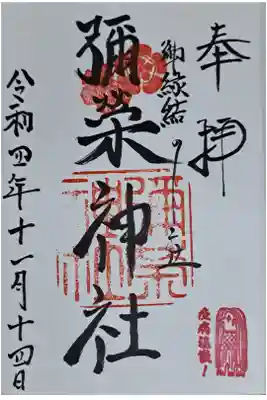 奉拝
御縁結の二社
彌栄神社
令和四年十一月十四日
疫病退散!